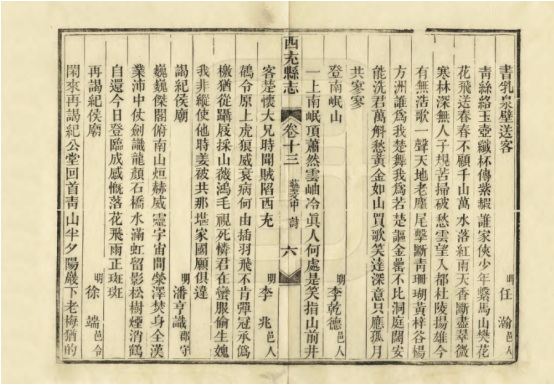 書乳泉壁送客 明 任瀚
靑絲絡玉壺纖杯傳紫蝦誰家俠少年繫馬山樊花
花飛送春春不顧千山萬水落紅雨天香斷盡翠微
寒林深無人子規苦掃破愁雲望入都杜陵揚雄今
有無浩歌一聲天地老麈尾擊斷靑珊瑚黃梓谷楊
方洲誰爲我楚舞我爲若楚謳金罍不比洞庭闊安
能洗君萬斛愁黃金如山買歌笑達深意只應孤月
共寥寥
登南岷山 明 李乾德 邑人
一上南岷頂蕭然雲岫冷眞人何處是笑指山前井
西充縣志 卷十三 藝文中 詩 六
客楚懷大兄時聞賊陷西充 明 李兆 邑人
鴒令原上虎狼威衰病何由插羽飛不肯彈冠承僞
檄猶從躡屐採山薇鴻毛視死憐君在蠻服偷生媿
我非縱使他時姜被共那堪家國願俱違
謁紀侯廟 明 潘亨識 郡守
巍巍傑閣俯南山烜赫威靈宇宙間滎澤焚身全漢
業沛中仗劍識龍顏石橋水滿虹留影松樹煙消鶴
自還今日登臨成感慨落花飛雨正斑斑
再謁紀侯廟 明 徐端 邑令
閑來再謁紀公堂回首靑山半夕陽巖下老梅猶的